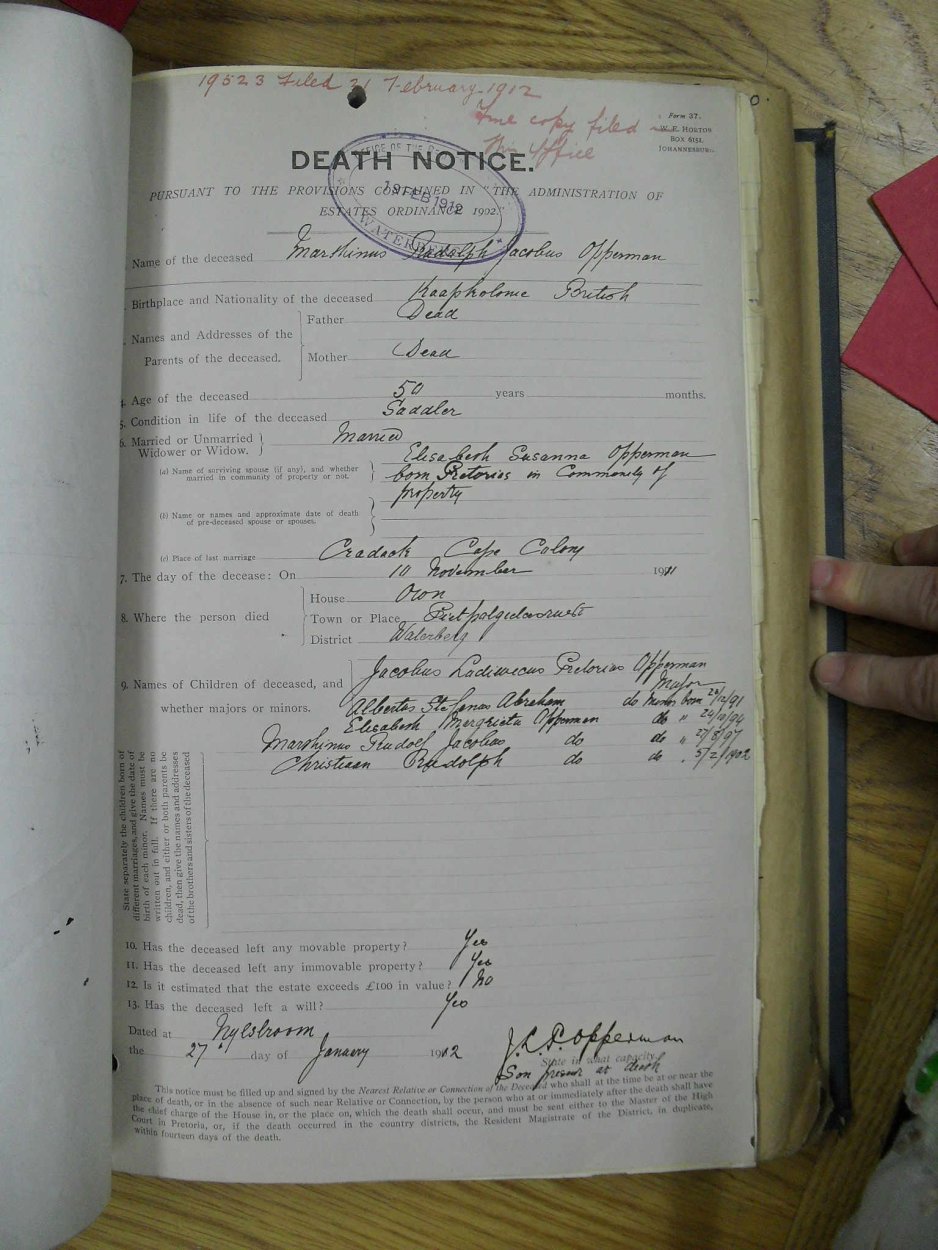 19523 Filed 21 February 1912
True copy filed in
this office
Form 37.
W. E. HORTOR
BOX 6151,
JOHANNESBURG.
DEATH NOTICE.
19 FEB 1912
WATERBERG
PURSUANT TO THE PROVISIONS CONTAINED IN "THE ADMINISTRATION OF
ESTATES ORDINANCE 1902."
Name of the deceased Marthinus Rudolph Jacobus Opperman
Birthplace and Nationality of the deceased Kaapkolonie British
Names and Addresses of the Parents of the deceased. Father Dead
Mother Dead
4. Age of the deceased 50 years months.
5. Condition in life of the deceased Saddler
6. Married or Unmarried Widower or Widow. Married
(a) Name of surviving spouse (if any), and whether married in community of property or not. Elisabeth Susanna Opperman
born Pretorius in Community of
property
(b) Name or names and approximate date of death of pre-deceased spouse or spouses.
(c) Place of last marriage Cradock Cape Colony
7. The day of the decease: On 10 November 1911
8. Where the person died House Own
Town or Place Pietpotgietersrust
District Waterberg
9. Names of Children of deceased, and whether majors or minors. Jacobus Lodiwecus Pretorius Opperman
Major
Albertus Stefanus Abraham do Minor born 28/12/91
Elisabeth Margrieta Opperman do " 24/10/94
Marthinus Rudolf Jacobus do do " 27/8/97
Christiaan Rudolph do do " 5/2/1902
State separately the children born of
different marriages, and give the date of
birth of each minor. Names must be
written out in full. If there are no
children, and either or both parents be
dead, then give the names and addresses
of the brothers and sisters of the deceased
10. Has the deceased left any movable property? Yes
11. Has the deceased left any immovable property? Yes
12. Is it estimated that the estate exceeds £100 in value? No
13. Has the deceased left a will? Yes
Dated at Nylstroom
the 27 day of January 1912 J. L. P. Opperman
State in what capacity.
Son present at death
This notice must be filled up and signed by the Nearest Relative or Connection of the Deceased who shall at the time be at or near the
place of death, or in the absence of such near Relative or Connection, by the person who at or immediately after the death shall have
the chief charge of the House in, or the place on, which the death shall occur, and must be sent either to the Master of the High
Court in Pretoria, or, if the death occurred in the country districts, the Resident Magistrate of the District, in duplicate,
within fourteen days of the death.